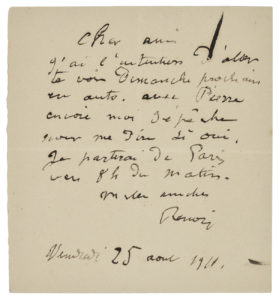 cher ami
j'ai l'intention d'aler
te voir Dimanche prochain
en auto. avec Pierre
envoie moi dépêche
pour me dire si oui.
Je partirai de Paris
vers 8h du matin.
Renoir
Vendredi 25 aout 1911.